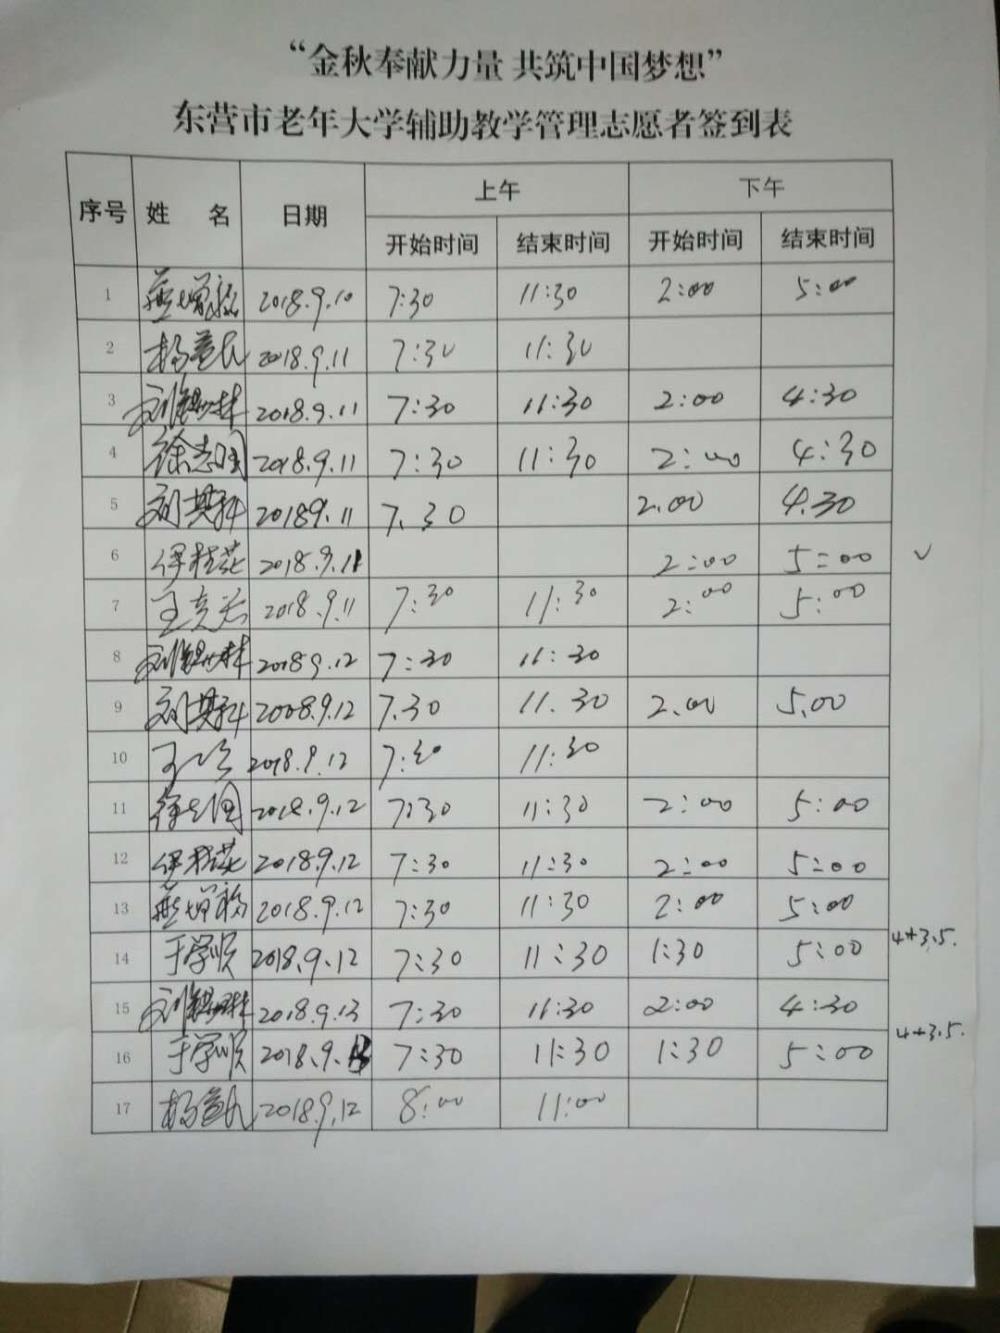 “金秋奉献力量 共筑中国梦想”
东营市老年大学辅助教学管理志愿者签到表
序号 姓 名 日期 上午 下午
开始时间 结束时间 开始时间 结束时间
1 2018.9.10 7:30 11:30 2:00 5:00
2 2018.9.11 7:30 11:30
3 2018.9.11 7:30 11:30 2:00 4:30
4 徐志国 2018.9.11 7:30 11:30 2:00 4:30
5 刘其科 20189.11 7.30 2.00 4.30
6 伊桂花 2018.9.11 2:00 5:00 ✓
7 2018.9.11 7:30 11:30 2:00 5:00
8 20189.12 7:30 11:30
9 刘其科 2008.9.12 7.30 11.30 2.00 5.00
10 2018.9.12 7:30 11:30
11 2018.9.12 7:30 11:30 2:00 5:00
12 伊桂花 2018.9.12 7:30 11:30 2:00 5:00
13 2018.9.12 7:30 11:30 2:00 5:00
14 于学顺 2018.9.12 7:30 11:30 1:30 5:00 4+3.5.
15 2018.9.13 7:30 11:30 2:00 4:30
16 于学顺 2018.9.13 7:30 11:30 1:30 5:00 4+3.5.
17 2018.9.12 8:00 11:00